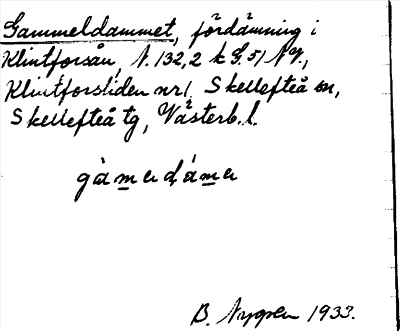 Gammeldammet, fördämning i
Klintforsån, N. 132,2 k S. 51 NV.,
Klintforsliden nr 1, Skellefteå sn,
Skellefteå tg, Västerb. l.
gàmɘdámɘ
B. Nygren 1933.